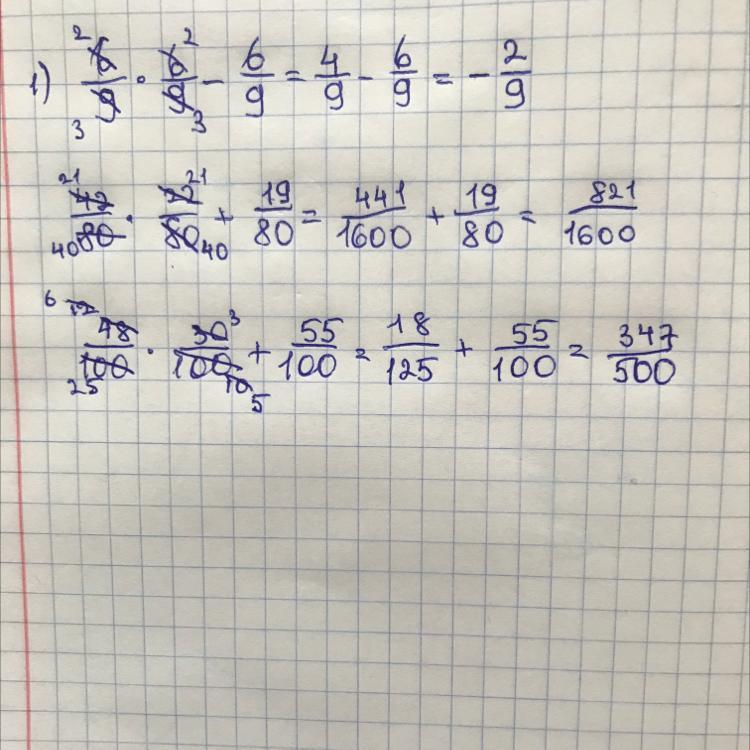 1) 6/9 · 6/9 - 6/9 = 4/9 - 6/9 = - 2/9
42/80 · 42/80 + 19/80 = 441/1600 + 19/80 = 821/1600
48/100 · 30/100 + 55/100 = 18/125 + 55/100 = 347/500